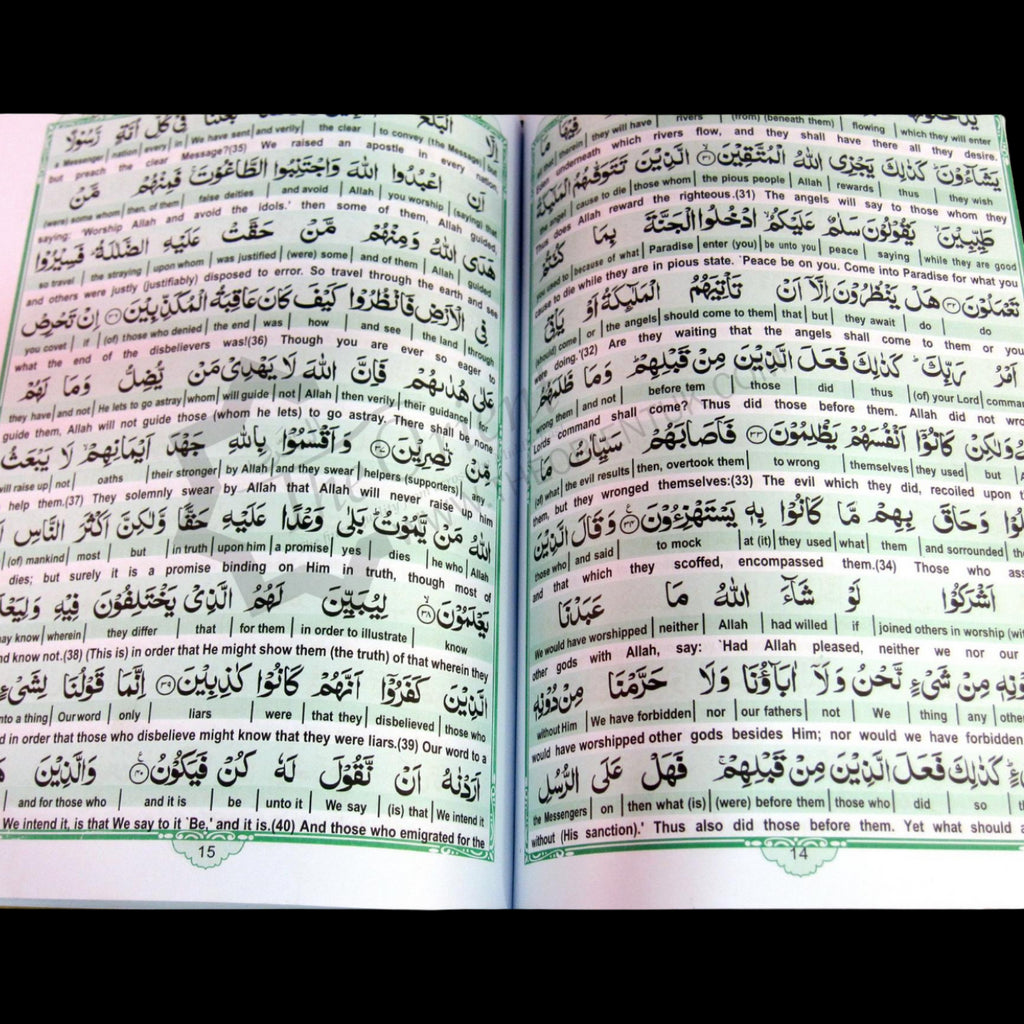 فِيْهَا مَا
they will have | rivers | (from) (beneath them) | flowing | which they will enter
Eden, underneath which rivers flow, and they shall have there all they desire.
يَشَآءُوْنَ كَذٰلِكَ يَجْزِى اللّٰهُ الْمُتَّقِيْنَ ﴿٣١﴾ الَّذِيْنَ تَتَوَفّٰىهُمُ الْمَلٰٓئِكَةُ
the angel | cause to die | those whom | the pious people | Allah | rewards | thus | they wish
Thus does Allah reward the righteous.(31) The angels will say to those whom they
طَيِّبِيْنَ يَقُوْلُوْنَ سَلٰمٌ عَلَيْكُمُ ادْخُلُوا الْجَنَّةَ بِمَا كُنْتُمْ
you used to | because of what | Paradise | enter (you) | be unto you | peace | saying | while they are good
cause to die while they are in pious state. `Peace be on you. Come into Paradise for what you
تَعْمَلُوْنَ ﴿٣٢﴾ هَلْ يَنْظُرُوْنَ اِلَّآ اَنْ تَاْتِيَهُمُ الْمَلٰٓئِكَةُ اَوْ يَاْتِىَ
(should) come | or | the angels | should come to them | that | but | they await | do | do
were doing.'(32) Are they waiting that the angels shall come to them or you
اَمْرُ رَبِّكَ كَذٰلِكَ فَعَلَ الَّذِيْنَ مِنْ قَبْلِهِمْ وَمَا ظَلَمَهُمُ
wrong them | and not | before tem | those | did | thus | (of) your Lord
Lords command shall come? Thus did those before them. Allah did not
وَلٰكِنْ كَانُوْٓا اَنْفُسَهُمْ يَظْلِمُوْنَ ﴿٣٣﴾ فَاَصَابَهُمْ سَيِّاٰتُ مَا
(of) what | the evil results | then, overtook them | to wrong | themselves | they used | but
them, but they wronged themselves:(33) The evil which they did, recoiled upon
وَحَاقَ بِهِمْ مَّا كَانُوْا بِهٖ يَسْتَهْزِءُوْنَ ﴿٣٤﴾ وَقَالَ الَّذِيْنَ
those who | and said | to mock | at (it) | they used | what | them | and sorrounded
and that which they scoffed, encompassed them.(34) Those who
اَشْرَكُوْا لَوْ شَآءَ اللّٰهُ مَا عَبَدْنَا
We would have worshipped | neither | Allah | had willed | if | joined others in worship
other gods with Allah, say: `Had Allah pleased, neither we nor our
مِنْ شَىْءٍ نَّحْنُ وَلَآ اٰبَآؤُنَا وَلَا حَرَّمْنَا مِنْ دُوْنِهٖ
without Him | We have forbidden | nor | our fathers | not | We | thing | any
would have worshipped other gods besides Him; nor would we have forbidden
كَذٰلِكَ فَعَلَ الَّذِيْنَ مِنْ قَبْلِهِمْ فَهَلْ عَلَى الرُّسُلِ
the Messengers | on | then what (is) | (were) before them | those who | did | so
without (His sanction).' Thus also did those before them. Yet what should
14
اِلَّا الْبَلٰغُ بَعَثْنَا فِىْ كُلِّ اُمَّةٍ رَّسُوْلًا
a Messenger | nation | every | in | We have sent | and verily | the clear | to convey (the Message) | but
but preach the clear Message?(35) We raised an apostle in every nation
اَنِ اعْبُدُوا اللّٰهَ وَاجْتَنِبُوا الطَّاغُوْتَ فَمِنْهُمْ مَّنْ
(were) some whom | then, of them | false deities | and avoid | Allah | you worship | (saying) that
saying: 'Worship Allah and avoid the idols.' then some of them, Allah guided,
هَدَى اللّٰهُ وَمِنْهُمْ مَّنْ حَقَّتْ عَلَيْهِ الضَّلٰلَةُ فَسِيْرُوْا
so travel | the straying | upon whom | was justified | (were) some | and of them | Allah | guided
and others were justly (justifiably) disposed to error. So travel through the earth and see
فِى الْاَرْضِ فَانْظُرُوْا كَيْفَ كَانَ عَاقِبَةُ الْمُكَذِّبِيْنَ ﴿٣٦﴾ اِنْ تَحْرِصْ
you covet | if | (of) those who denied | the end | was | how | and see | the land | through
what the end of the disbelievers was!(36) Though you are ever so eager to
عَلٰى هُدٰىهُمْ فَاِنَّ اللّٰهَ لَا يَهْدِىْ مَنْ يُّضِلُّ وَمَا لَهُمْ
they have | and not | He lets to go astray | whom | will guide | not | Allah | then verily | their guidance | for
guide them, Allah will not guide those (whom he lets) to go astray. There shall be none
مِّنْ نّٰصِرِيْنَ ﴿٣٧﴾ وَاَقْسَمُوْا بِاللّٰهِ جَهْدَ اَيْمَانِهِمْ لَا يَبْعَثُ
will raise up | not | oaths | their stronger | by Allah | and they swear | helpers (supporters) | any
help them.(37) They solemnly swear by Allah that Allah will never raise up him
اللّٰهُ مَنْ يَّمُوْتُ بَلٰى وَعْدًا عَلَيْهِ حَقًّا وَّلٰكِنَّ اَكْثَرَ النَّاسِ
(of) mankind | most | but | in truth | upon him | a promise | yes | dies | he who | Allah
dies; but surely it is a promise binding on Him in truth, though most of
يَعْلَمُوْنَ ﴿٣٨﴾ لِيُبَيِّنَ لَهُمُ الَّذِىْ يَخْتَلِفُوْنَ فِيْهِ
may know | wherein | they differ | that | for them | in order to illustrate | know
know not.(38) (This is) in order that He might show them (the truth) of that wherein they
الَّذِيْنَ كَفَرُوْٓا اَنَّهُمْ كَانُوْا كٰذِبِيْنَ ﴿٣٩﴾ اِنَّمَا قَوْلُنَا لِشَىْءٍ
to a thing | Our word | only | liars | were | that they | disbelieved | those who
in order that those who disbelieve might know that they were liars.(39) Our word to a
اَرَدْنٰهُ اَنْ نَّقُوْلَ لَهٗ كُنْ فَيَكُوْنُ ﴿٤٠﴾ وَالَّذِيْنَ
and for those who | and it is | be | unto it | We say | (is) that | We intend it
We intend it, is that We say to it `Be,' and it is.(40) And those who emigrated for the
15